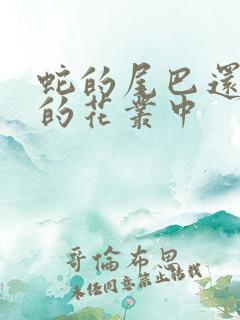 蛇的尾巴還
的花叢中
哥倫布思
未任同意禁止轉載